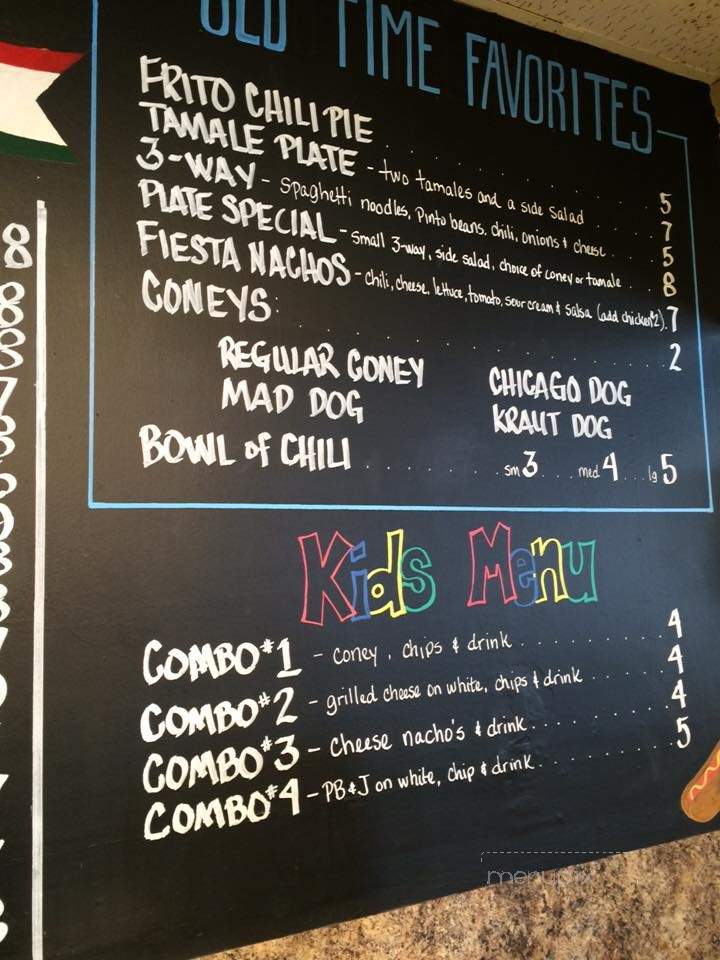 OLD TIME FAVORITES
FRITO CHILI PIE . . . . . 5
TAMALE PLATE - two tamales and a side salad . . . 7
3-WAY - Spaghetti noodles, Pinto beans, chili, onions & cheese . . 5
PLATE SPECIAL - Small 3-way, side salad, choice of coney or tamale . . . 8
FIESTA NACHOS - chili, cheese, lettuce, tomato, sour cream & salsa (add chicken $2). 7
CONEYS: . . . . . 2
REGULAR CONEY CHICAGO DOG
MAD DOG KRAUT DOG
BOWL of CHILI . . . . . sm 3 . . . med 4 . . . lg 5
Kids Menu
COMBO #1 - coney, chips & drink . . . . . 4
COMBO #2 - grilled cheese on white, chips & drink . . . . . 4
COMBO #3 - cheese nacho's & drink . . . . . 4
COMBO #4 - PB & J on white, chip & drink . . . . . 5
8
8
8
7